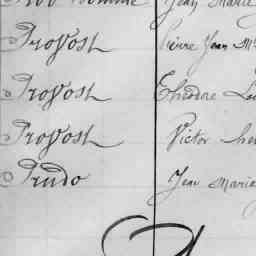 Jean Marie
Provost Pierre Jean M
Provost Théodore Lu
Provost Victor
Prudo Jean Marie